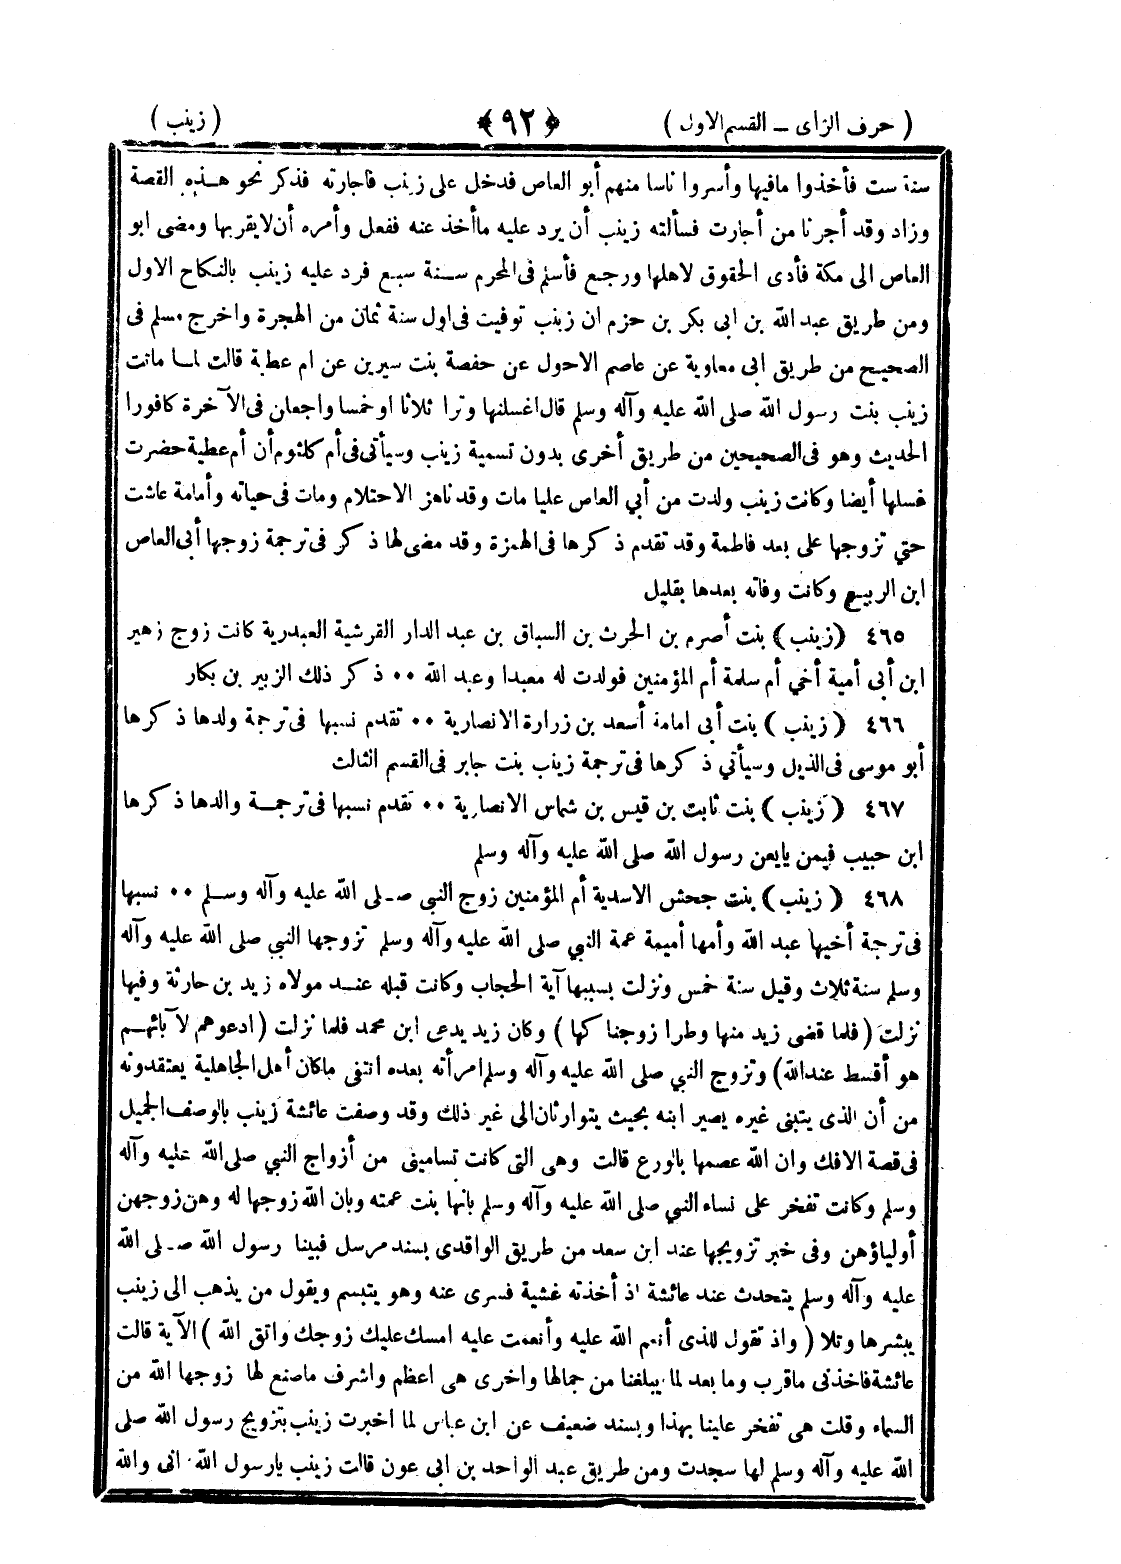 ( حرف الزاى ــ القسم الاول ) ﴿ ٩٢ ﴾ ( زينب )
سنة ست فأخذوا مافيها وأسروا ناسا منهم أبو العاص فدخل على زينب فاجارته فذكر نحو هـذه القصة
وزاد وقد أجرنا من أجارت فسألته زينب أن يرد عليه ماأخذ عنه ففعل وأمره أن لايقربها ومضى ابو
العاص الى مكة فأدى الحقوق لاهلها ورجع فأسلم فى المحرم سـنة سبع فرد عليه زينب بالنكاح الاول
ومن طريق عبد الله بن ابى بكر بن حزم ان زينب توفيت فى اول سنة ثمان من الهجرة واخرج مسلم فى
الصحيح من طريق ابى معاوية عن عاصم الاحول عن حفصة بنت سيرين عن ام عطية قالت لمـا ماتت
زينب بنت رسول الله صلى الله عليه وآله وسلم قال اغسلنها وترا ثلاثا او خمسا واجعلن فى الآخرة كافورا
الحديث وهو فى الصحيحين من طريق أخرى بدون تسمية زينب وسيأتى فى أم كلثوم أن أم عطية حضرت
غسلها أيضا وكانت زينب ولدت من أبي العاص عليا مات وقد ناهز الاحتلام ومات فى حياته وأمامة عاشت
حتي تزوجها على بعد فاطمة وقد تقدم ذكرها فى الهمزة وقد مضى لها ذكر فى ترجمة زوجها أبى العاص
ابن الربيع وكانت وفاته بعدها بقليل
٤٦٥ ( زينب ) بنت أصرم بن الحرث بن السباق بن عبد الدار القرشية العبدرية كانت زوج زهير
ابن أبى أمية أخي أم سلمة أم المؤمنين فولدت له معبدا وعبد الله ٠٠ ذكر ذلك الزبير بن بكار
٤٦٦ ( زينب ) بنت أبى امامة أسعد بن زرارة الانصارية ٠٠ تقدم نسبها فى ترجمة ولدها ذكرها
أبو موسى فى الذيل وسيأتي ذكرها فى ترجمة زينب بنت جابر فى القسم الثالث
٤٦٧ ( زينب ) بنت ثابت بن قيس بن شماس الانصارية ٠٠ تقدم نسبها فى ترجمـة والدها ذكرها
ابن حبيب فيمن بايعن رسول الله صلى الله عليه وآله وسلم
٤٦٨ ( زينب ) بنت جحش الاسدية أم المؤمنين زوج النبي صـلى الله عليه وآله وسـلم ٠٠ نسبها
فى ترجمة أخيها عبد الله وأمها أميمة عمة النبي صلى الله عليه وآله وسلم تزوجها النبي صلى الله عليه وآله
وسلم سنة ثلاث وقيل سنة خمس ونزلت بسببها آية الحجاب وكانت قبله عنـد مولاه زيد بن حارثة وفيها
نزلت ( فلما قضى زيد منها وطرا زوجناكها ) وكان زيد يدعى ابن محمد فلما نزلت ( ادعوهم لآبائهـم
هو أقسط عند الله ) وتزوج النبي صلى الله عليه وآله وسلم امرأته بعده انتفى ماكان أهل الجاهلية يعتقدونه
من أن الذى يتبنى غيره يصير ابنه بحيث يتوارثان الى غير ذلك وقد وصفت عائشة زينب بالوصف الجميل
فى قصة الافك وان الله عصمها بالورع قالت وهى التى كانت تسامينى من أزواج النبي صلى الله عليه وآله
وسلم وكانت تفخر على نساء النبي صلى الله عليه وآله وسلم بانها بنت عمته وبان الله زوجها له وهن زوجهن
أولياؤهن وفى خبر تزويجها عند ابن سعد من طريق الواقدى بسند مرسل فبينا رسول الله صـلى الله
عليه وآله وسلم يتحدث عند عائشة اذ أخذته غشية فسرى عنه وهو يتبسم ويقول من يذهب الى زينب
يبشرها وتلا ( واذ تقول للذى أنعم الله عليه وأنعمت عليه امسك عليك زوجك واتق الله ) الآية قالت
عائشة فاخذنى ماقرب وما بعد لما يبلغنا من جمالها واخرى هى اعظم واشرف ماصنع لها زوجها الله من
السماء وقلت هى تفخر علينا بهذا وبسند ضعيف عن ابن عباس لما اخبرت زينب بتزويج رسول الله صلى
الله عليه وآله وسلم لها سجدت ومن طريق عبد الواحد بن ابى عون قالت زينب يارسول الله انى والله